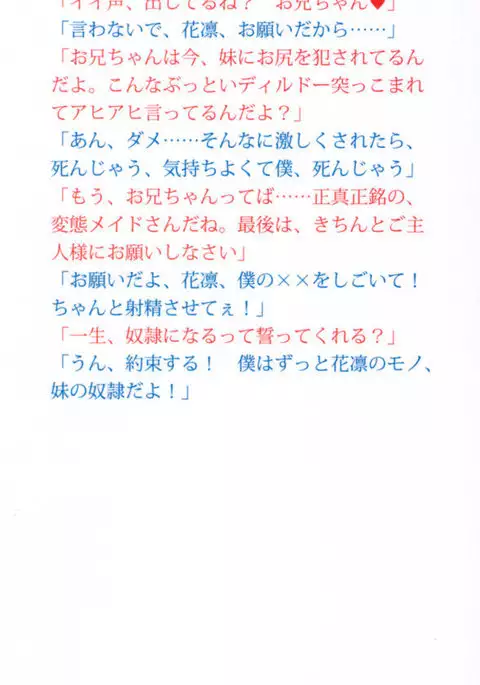 「イイ声、出してるね？　お兄ちゃん♥」
「言わないで、花凛、お願いだから……」
「お兄ちゃんは今、妹にお尻を犯されてるん
だよ。こんなぶっといディルドー突っこまれ
てアヒアヒ言ってるんだよ？」
「あん、ダメ……そんなに激しくされたら、
死んじゃう、気持ちよくて僕、死んじゃう」
「もう、お兄ちゃんってば……正真正銘の、
変態メイドさんだね。最後は、きちんとご主
人様にお願いしなさい」
「お願いだよ、花凛、僕の××をしごいて！
ちゃんと射精させてぇ！」
「一生、奴隷になるって誓ってくれる？」
「うん、約束する！　僕はずっと花凛のモノ、
妹の奴隷だよ！」